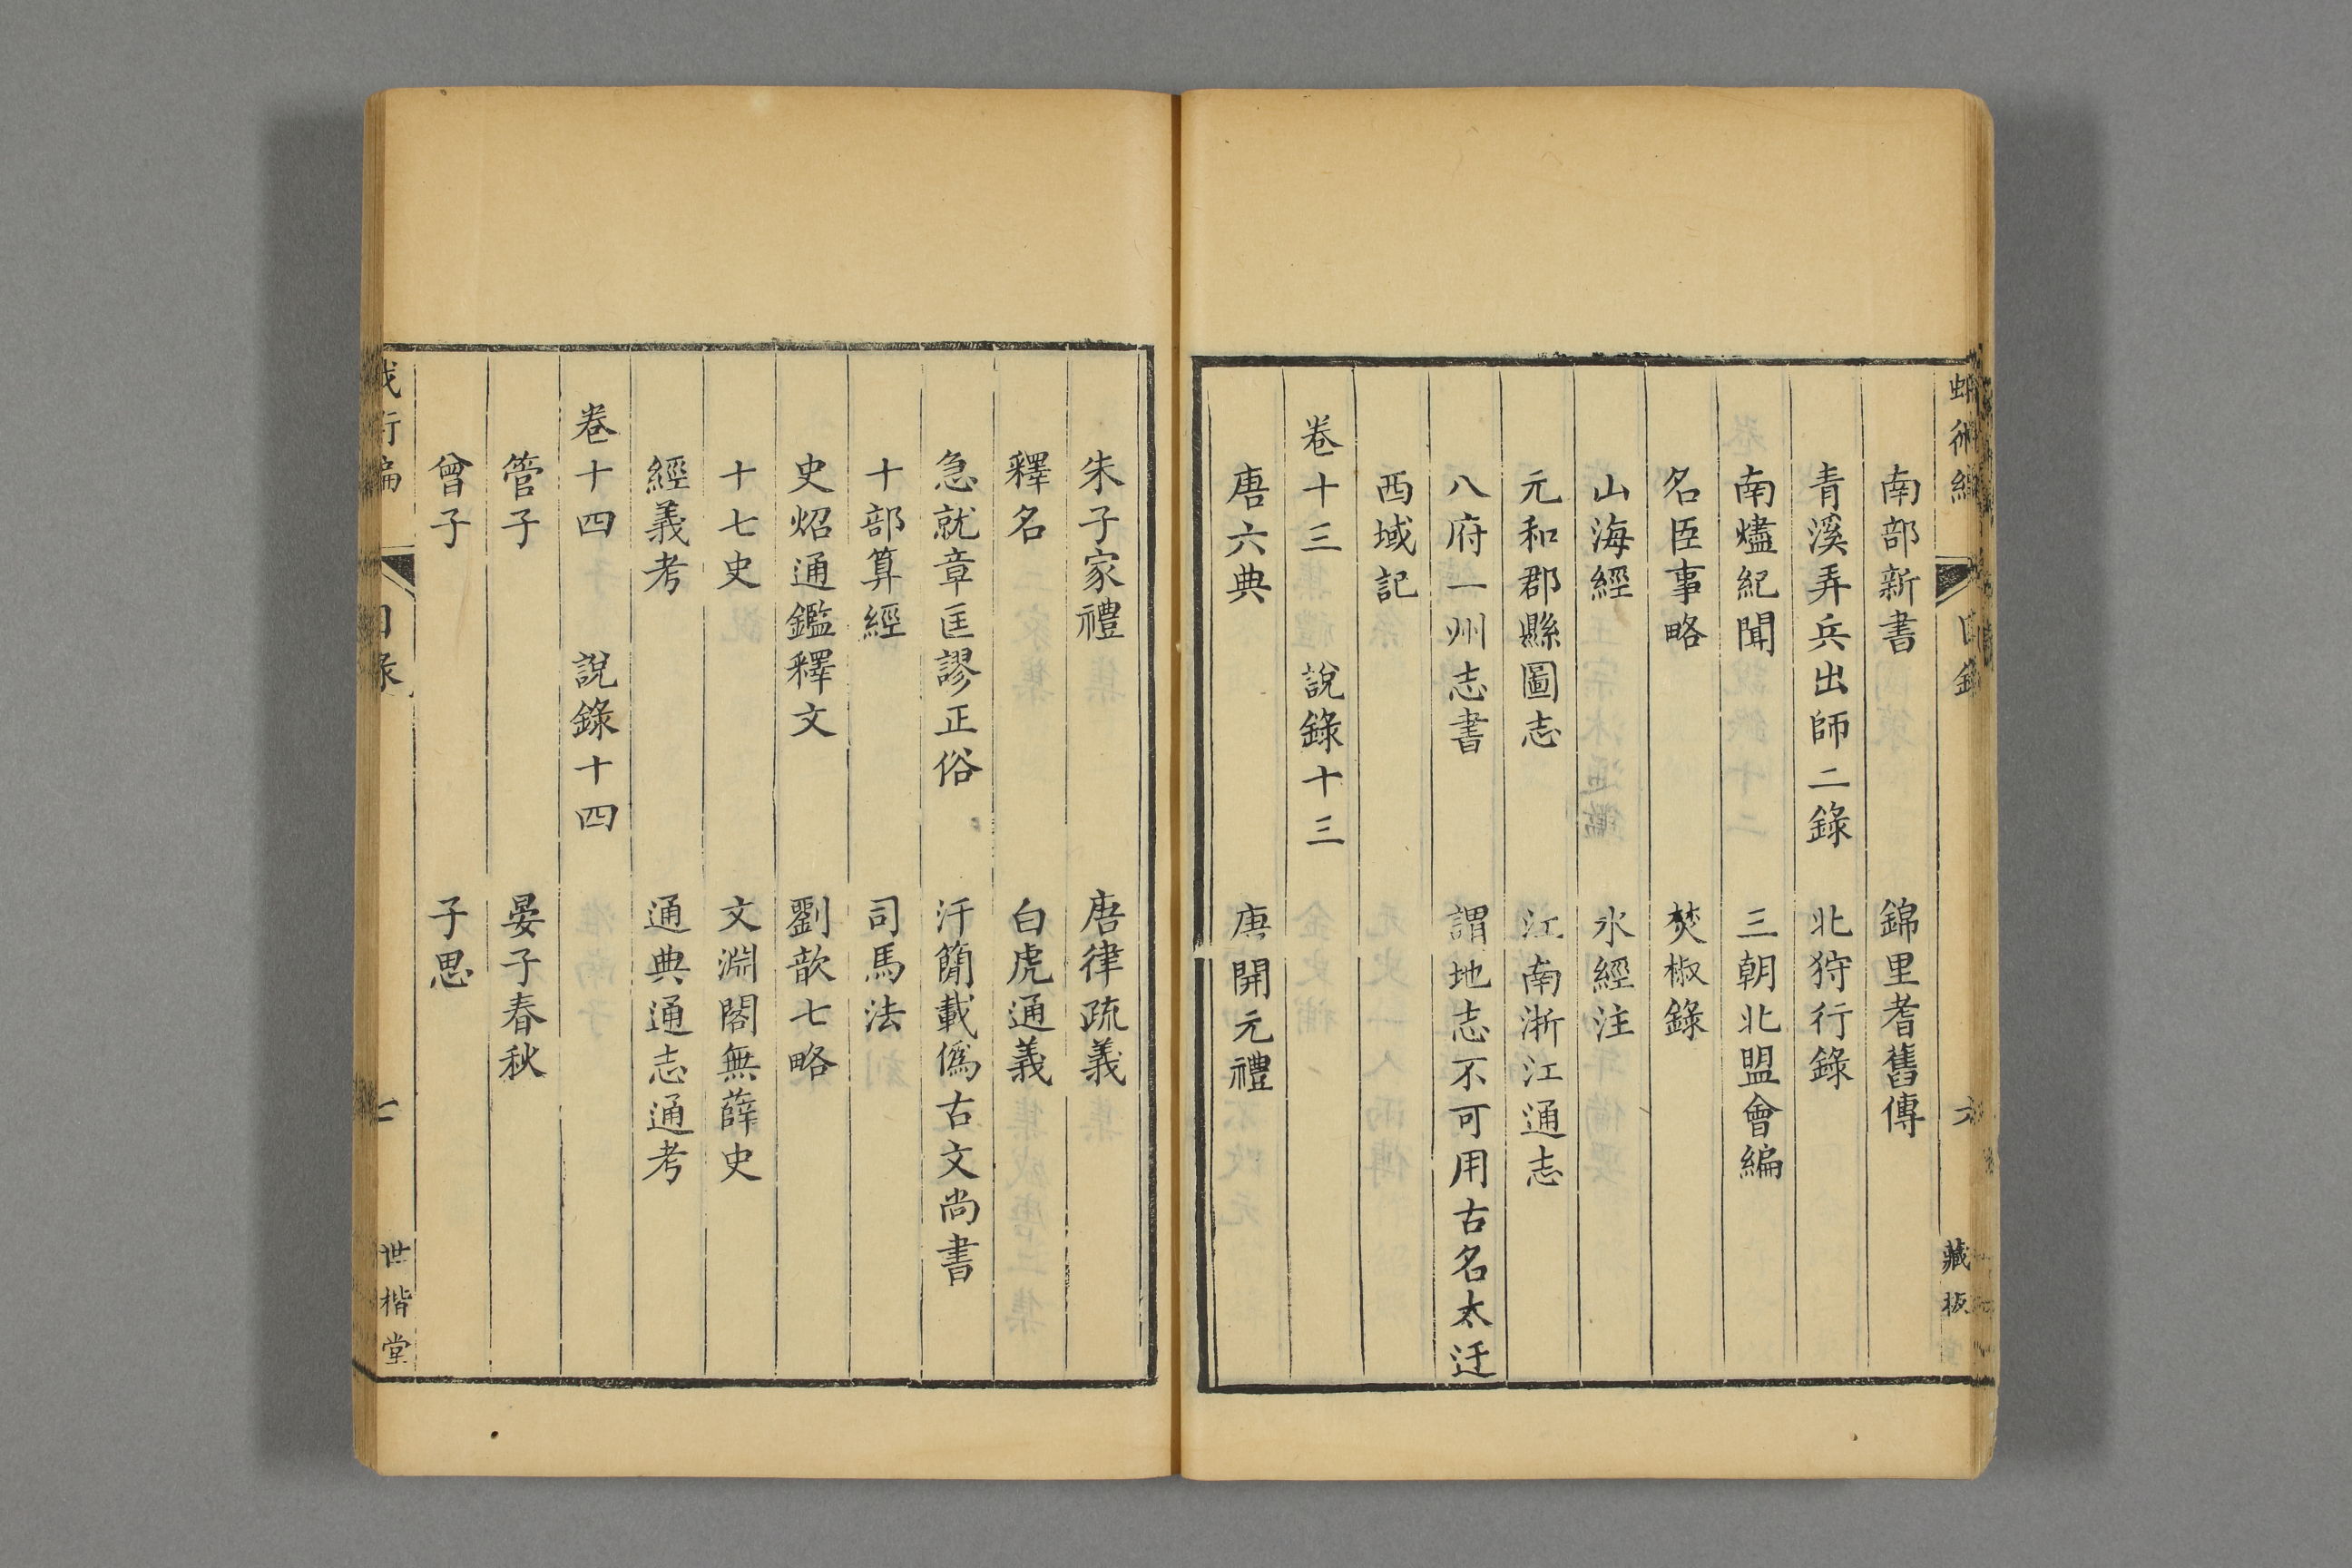 南部新書 錦里耆舊傳
青溪弄兵出師二錄 北狩行錄
南燼紀聞 三朝北盟會編
名臣事略 焚椒錄
山海經 水經注
元和郡縣圖志 江南浙江通志
八府一州志書 謂地志不可用古名太迂
西域記
卷十三 說錄十三
唐六典 唐開元禮
藏板
朱子家禮 唐律疏義
釋名 白虎通義
急就章匡謬正俗 汗簡載僞古文尚書
十部算經 司馬法
史炤通鑑釋文 劉歆七略
十七史 文淵閣無薛史
經義考 通典通志通考
卷十四 說錄十四
管子 晏子春秋
曾子 子思
世楷堂